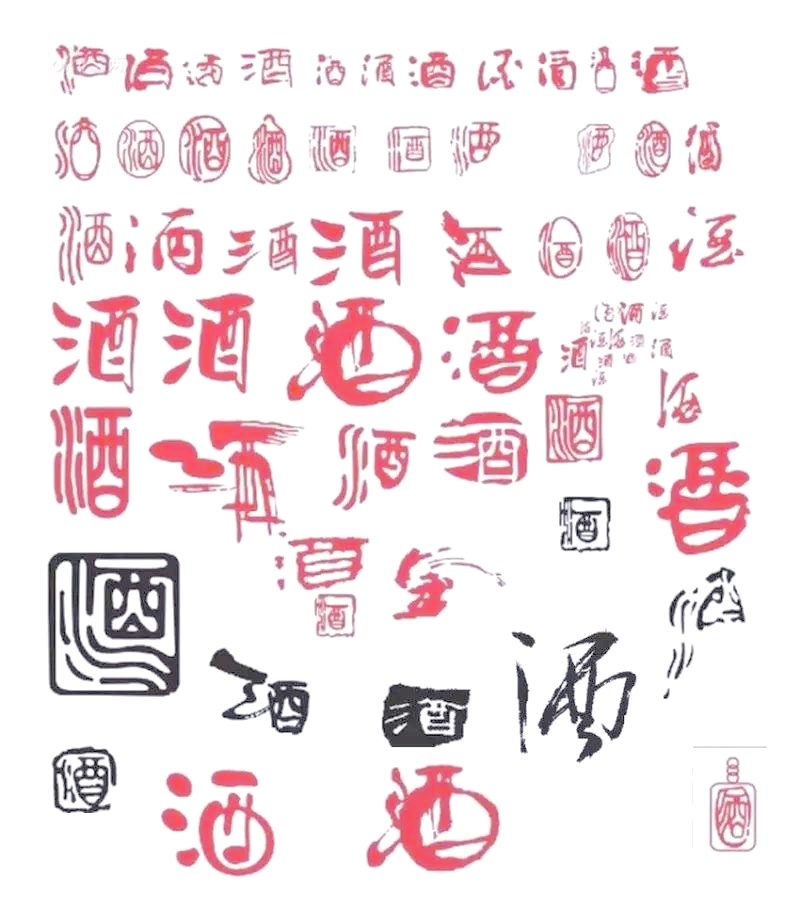 酒 酒 酒 酒 酒 酒 酒 酒 酒 酒 酒
酒 酒 酒 酒 酒 酒 酒 酒 酒 酒
酒 酒 酒 酒 酒 酒 酒 酒
酒 酒 酒 酒 酒 酒 酒 酒 酒 酒 酒
酒 酒 酒 酒 酒 酒 酒
酒
酒 酒 酒 酒
酒 酒 酒 酒
酒 酒 酒 酒